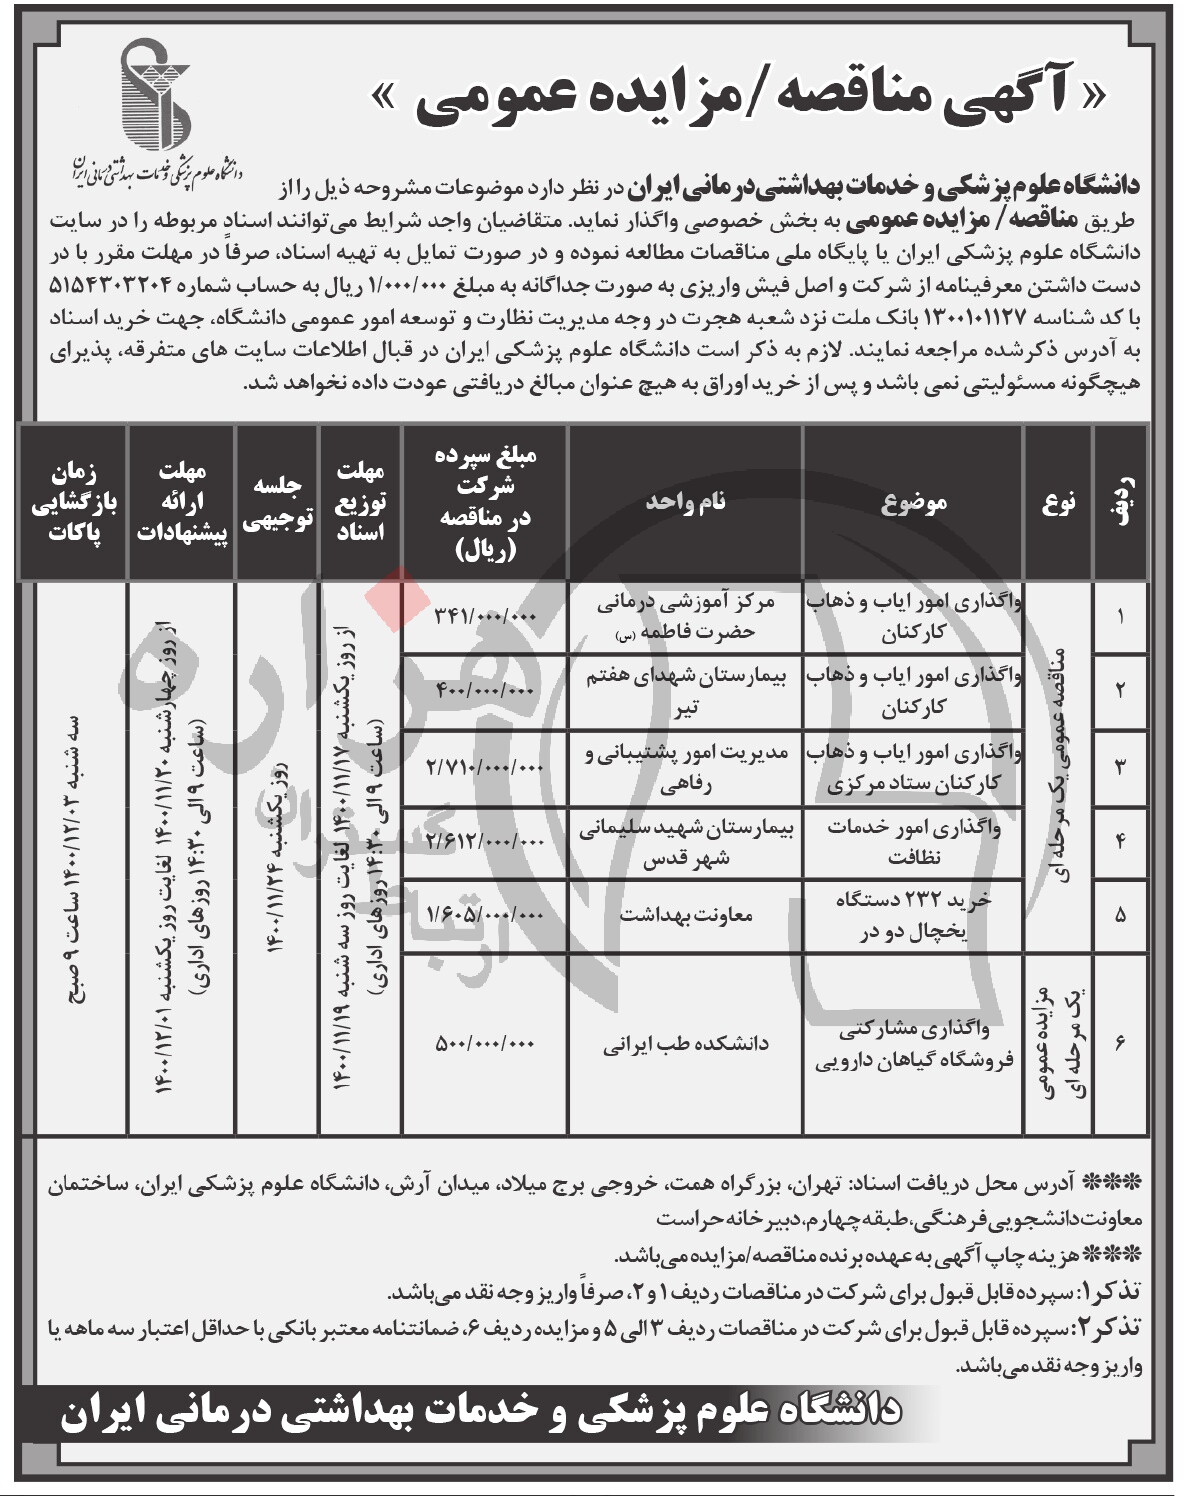 « آگهی مناقصه /مزایده عمومی »
دانشگاه علوم پزشکی و خدمات بهداشتی درمانی ایران
دانشگاه علوم پزشکی و خدمات بهداشتی درمانی ایران در نظر دارد موضوعات مشروحه ذیل را از
طریق مناقصه/ مزایده عمومی به بخش خصوصی واگذار نماید. متقاضیان واجد شرایط می‌توانند اسناد مربوطه را در سایت
دانشگاه علوم پزشکی ایران یا پایگاه ملی مناقصات مطالعه نموده و در صورت تمایل به تهیه اسناد، صرفاً در مهلت مقرر با در
دست داشتن معرفینامه از شرکت و اصل فیش واریزی به صورت جداگانه به مبلغ ۱/۰۰۰/۰۰۰ ریال به حساب شماره ۵۱۵۴۳۰۳۲۰۴
با کد شناسه ۱۳۰۰۱۰۱۱۲۷ بانک ملت نزد شعبه هجرت در وجه مدیریت نظارت و توسعه امور عمومی دانشگاه، جهت خرید اسناد
به آدرس ذکرشده مراجعه نمایند. لازم به ذکر است دانشگاه علوم پزشکی ایران در قبال اطلاعات سایت های متفرقه، پذیرای
هیچگونه مسئولیتی نمی باشد و پس از خرید اوراق به هیچ عنوان مبالغ دریافتی عودت داده نخواهد شد.
ردیف
نوع
موضوع
نام واحد
مبلغ سپرده
شرکت
در مناقصه
(ریال)
مهلت
توزیع
اسناد
جلسه
توجیهی
مهلت
ارائه
پیشنهادات
زمان
بازگشایی
پاکات
۱
مناقصه عمومی یک مرحله ای
واگذاری امور ایاب و ذهاب
کارکنان
مرکز آموزشی درمانی
حضرت فاطمه (س)
۳۴۱/۰۰۰/۰۰۰
از روز یکشنبه ۱۴۰۰/۱۱/۱۷ لغایت روز سه شنبه ۱۴۰۰/۱۱/۱۹
(ساعت ۹ الی ۱۴:۳۰ روزهای اداری)
روز یکشنبه ۱۴۰۰/۱۱/۲۴
از روز چهارشنبه ۱۴۰۰/۱۱/۲۰ لغایت روز یکشنبه ۱۴۰۰/۱۲/۰۱
(ساعت ۹ الی ۱۴:۳۰ روزهای اداری)
سه شنبه ۱۴۰۰/۱۲/۰۳ ساعت ۹ صبح
۲
واگذاری امور ایاب و ذهاب
کارکنان
بیمارستان شهدای هفتم
تیر
۴۰۰/۰۰۰/۰۰۰
۳
واگذاری امور ایاب و ذهاب
کارکنان ستاد مرکزی
مدیریت امور پشتیبانی و
رفاهی
۲/۷۱۰/۰۰۰/۰۰۰
۴
واگذاری امور خدمات
نظافت
بیمارستان شهید سلیمانی
شهر قدس
۲/۶۱۲/۰۰۰/۰۰۰
۵
خرید ۲۳۲ دستگاه
یخچال دو در
معاونت بهداشت
۱/۶۰۵/۰۰۰/۰۰۰
۶
مزایده عمومی
یک مرحله ای
واگذاری مشارکتی
فروشگاه گیاهان دارویی
دانشکده طب ایرانی
۵۰۰/۰۰۰/۰۰۰
هزاره
گستران
ارتباط
*** آدرس محل دریافت اسناد: تهران، بزرگراه همت، خروجی برج میلاد، میدان آرش، دانشگاه علوم پزشکی ایران، ساختمان
معاونت دانشجویی فرهنگی، طبقه چهارم، دبیرخانه حراست
*** هزینه چاپ آگهی به عهده برنده مناقصه/مزایده می‌باشد.
تذکر۱: سپرده قابل قبول برای شرکت در مناقصات ردیف ۱ و ۲، صرفاً واریز وجه نقد می‌باشد.
تذکر۲: سپرده قابل قبول برای شرکت در مناقصات ردیف ۳ الی ۵ و مزایده ردیف ۶، ضمانتنامه معتبر بانکی با حداقل اعتبار سه ماهه یا
واریز وجه نقد می‌باشد.
دانشگاه علوم پزشکی و خدمات بهداشتی درمانی ایران